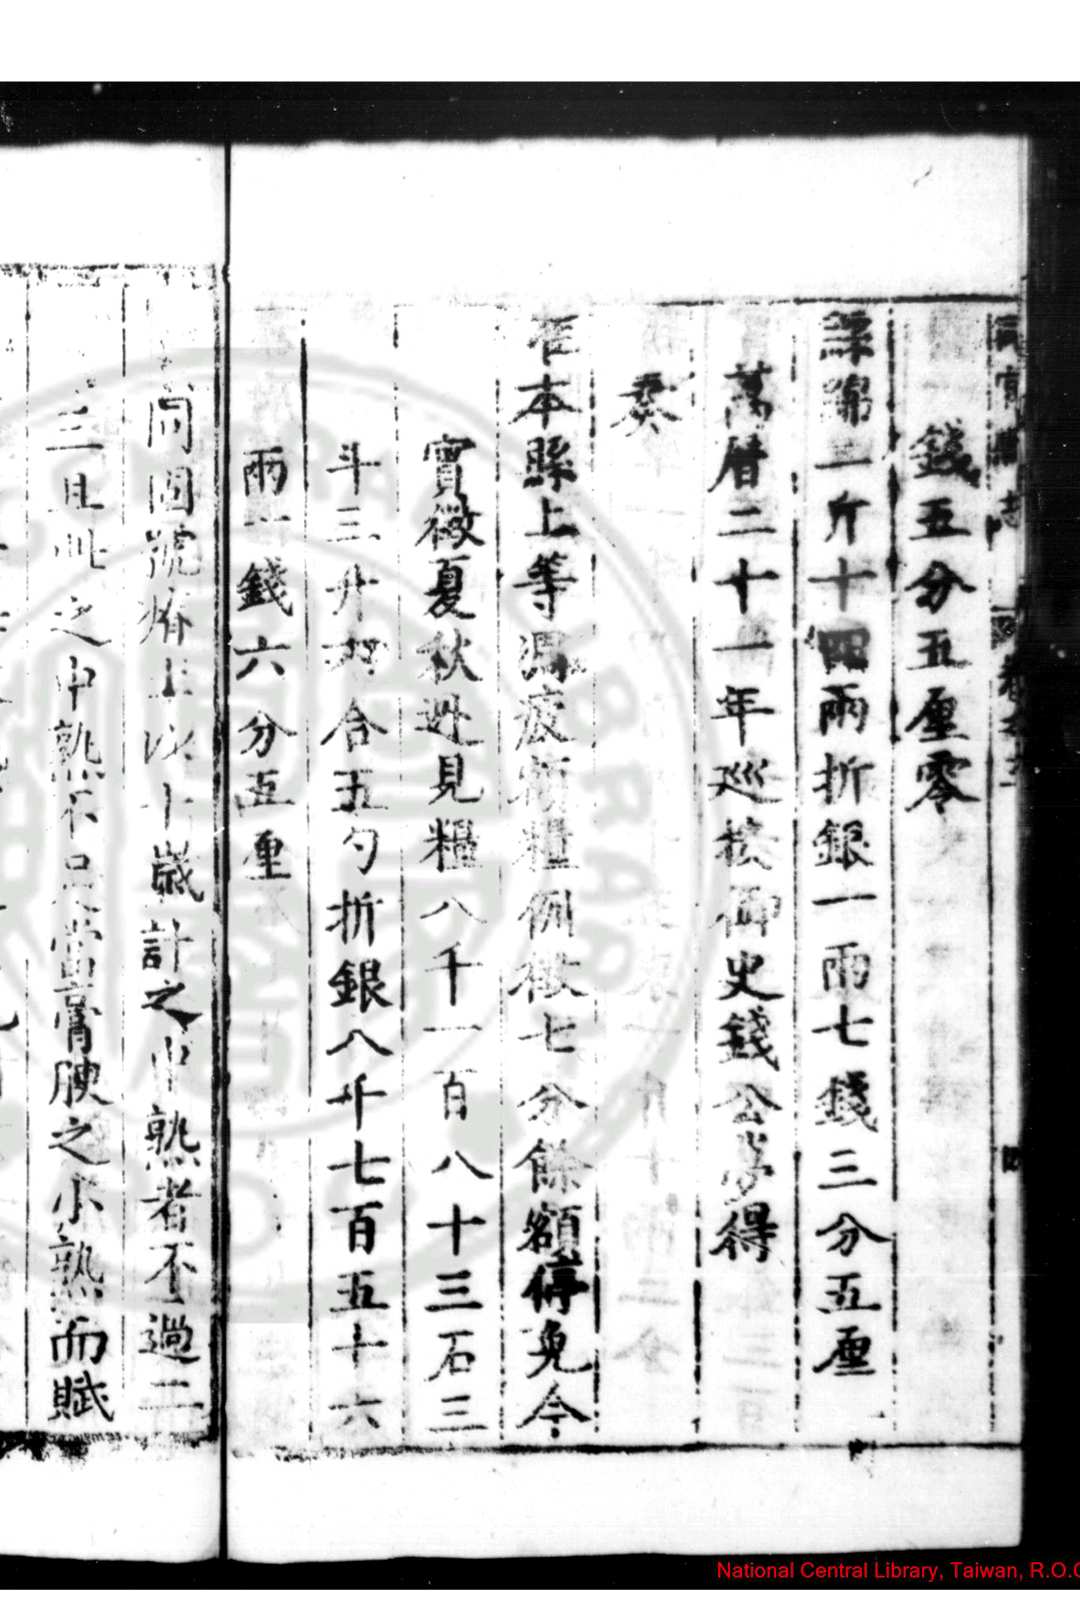 同官縣志 卷之
錢五分五厘零
絲綿一斤十四兩折銀一兩七錢三分五厘
萬曆二十一年巡按御史錢公夢得
奏
准本縣上等凋疲額糧例徵七分餘額停免今
實徵夏秋近見糧八千一百八十三石三
斗三升 合五勺折銀八千七百五十六
兩一錢六分五厘
同固號瘠土以十歲計之中熟者不過二
三且此之中熟不足當膏腴之小熟而賦
National Central Library, Taiwan, R.O.C